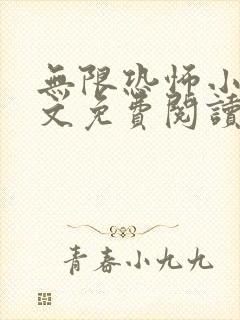 無限恐怖小
文免費閱讀
青春小九九